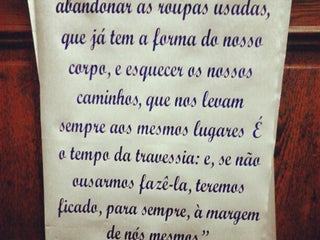 abandonar as roupas usadas,
que já tem a forma do nosso
corpo, e esquecer os nossos
caminhos, que nos levam
sempre aos mesmos lugares É
o tempo da travessia: e, se não
ousarmos fazê-la, teremos
ficado, para sempre, à margem
de nós mesmos”